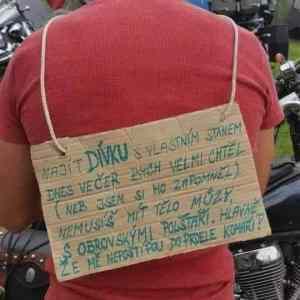 NAJÍT DÍVKU S VLASTNÍM STANEM
DNES VEČER BYCH VELMI CHTĚL
(NEB JSEM SI HO ZAPOMNĚL)
NEMUSÍŠ MÍT TĚLO MŮZY,
S OBROVSKÝMI POLŠTÁŘI, HLAVNĚ
ŽE MĚ NEPOŠTÍPOU DO PRDELE KOMÁŘI?